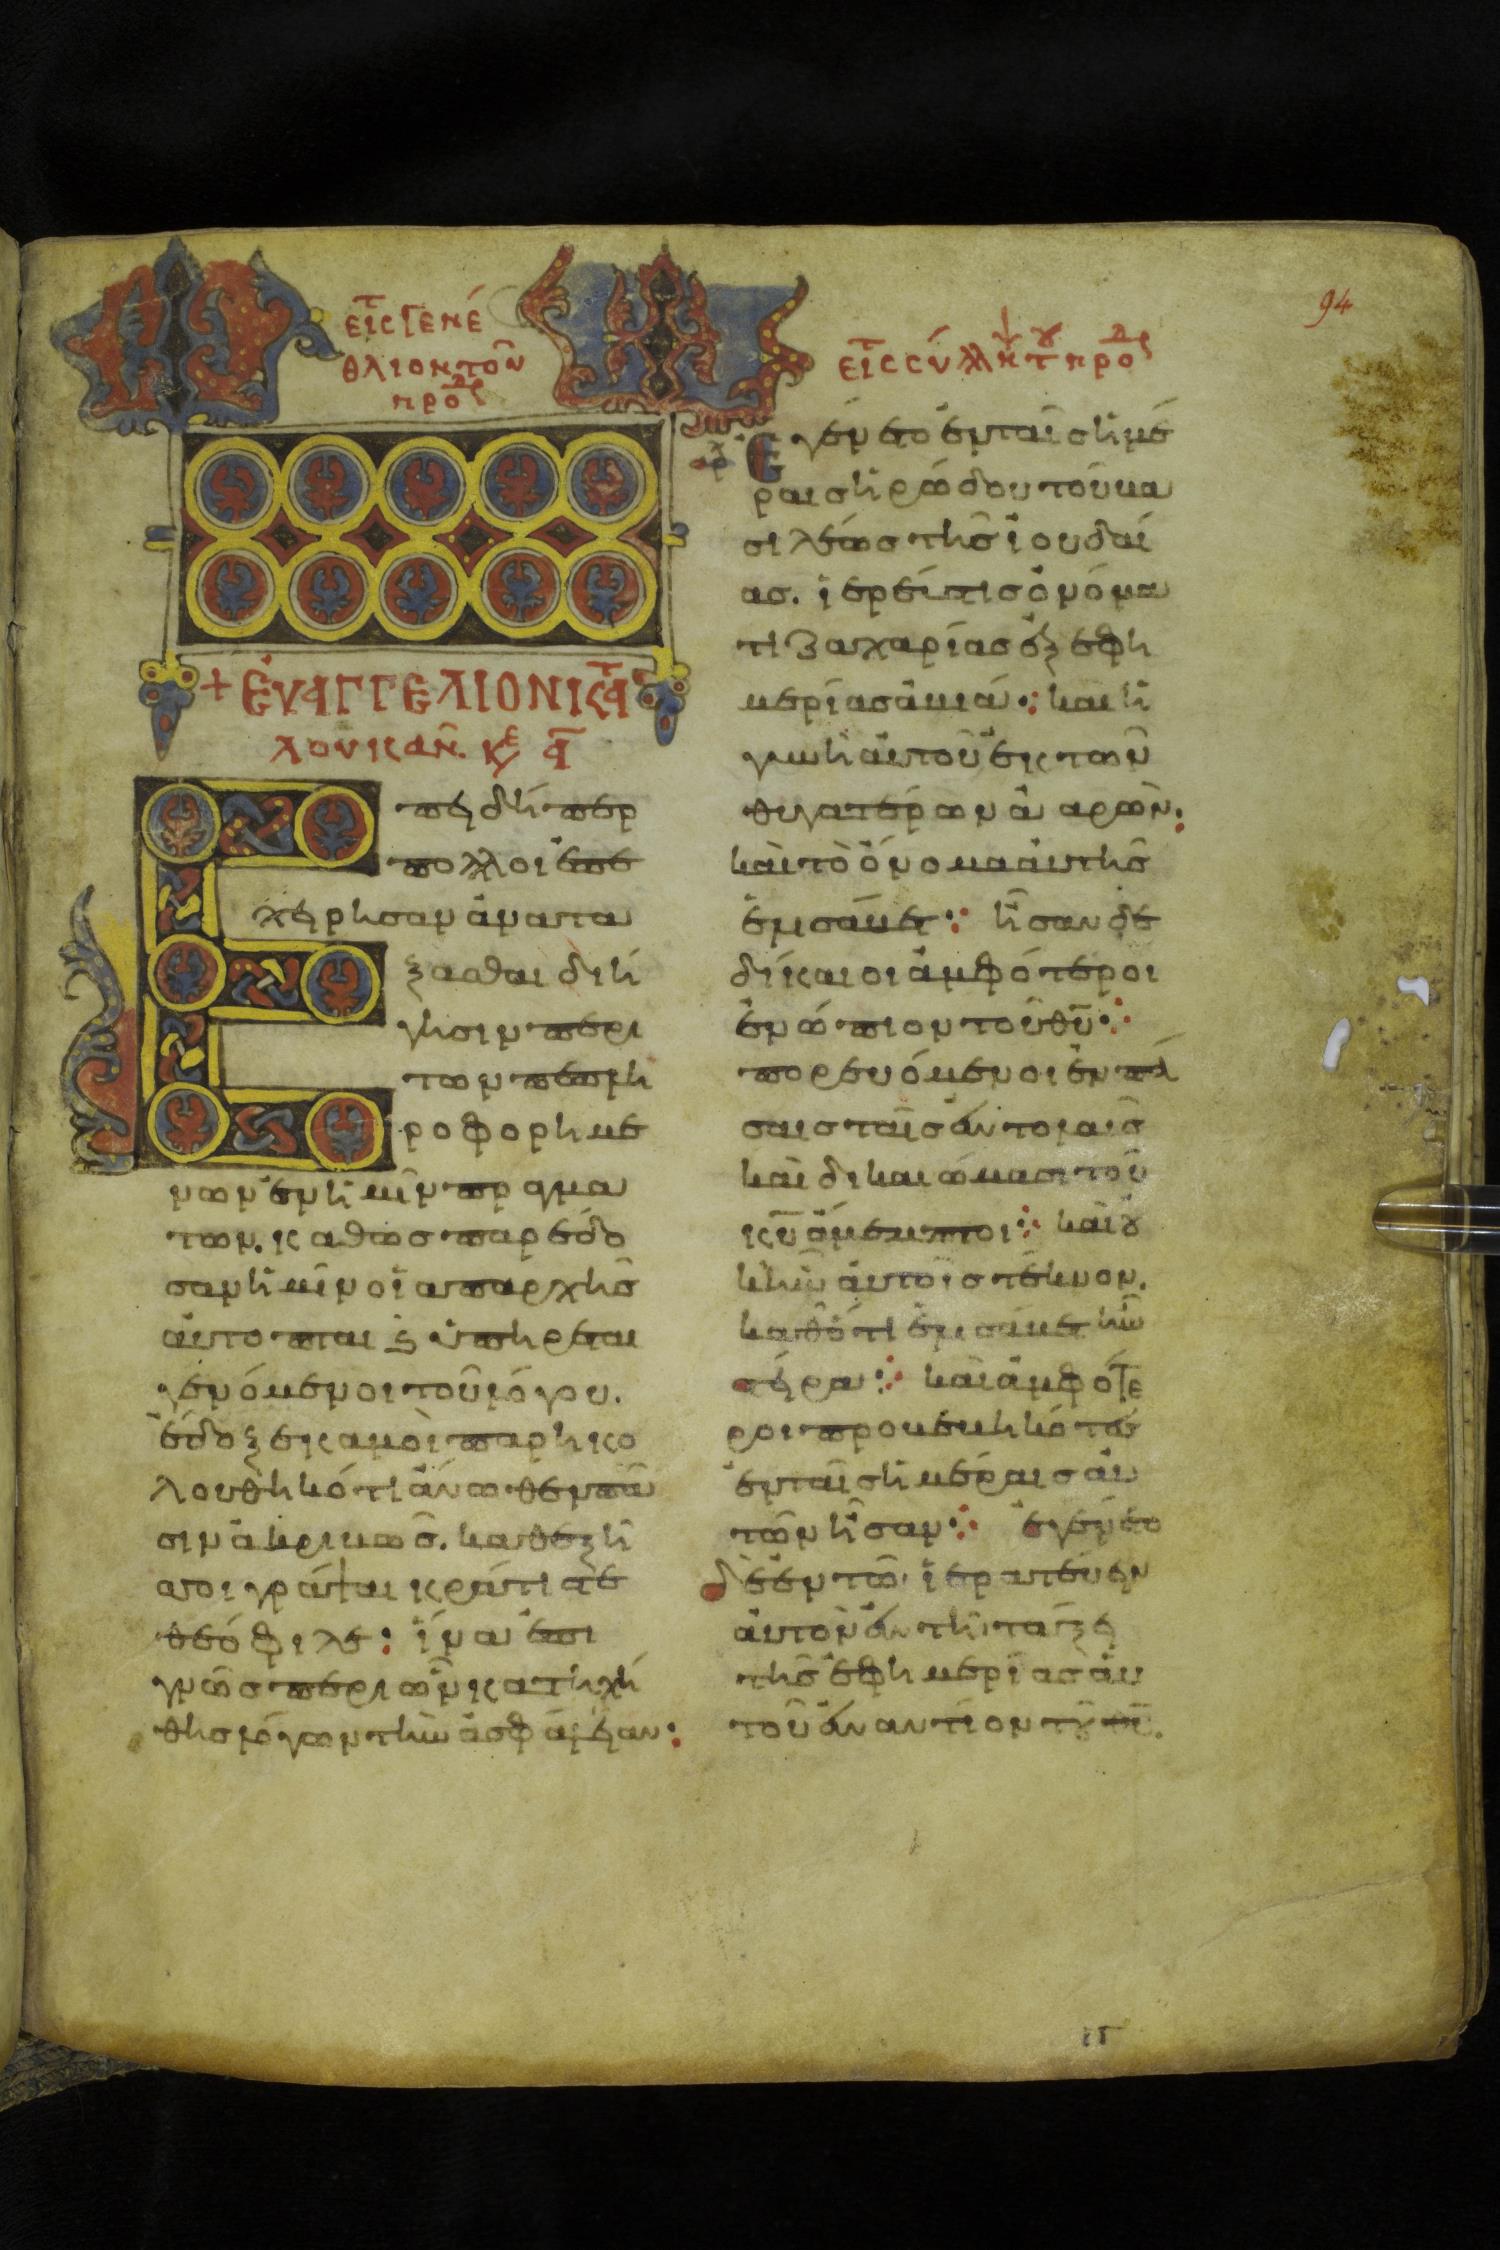 94
εἰς τ γενέ
θλιον τὸν
προδς
+ ἐυαγγέλιον κατὰ
λουκὰν. κε α
Ε πειδή περ
πολλοὶ ἐπε
χείρησαν ἀνατα
ξασθαι διή
γησιν περι
των πεπλη
ροφορημε
νων ἐν ἡμῖν πραγμα
των. καθὼσ παρέδο
σαν ἡμῖν οἱ απαρχῆσ
ἀυτοπται κ ὑπηρεται
γενόμενοι τοῦ λόγου.
ἔδοξε κἀμοὶ παρηκο
λουθηκότι ἄνωθεν πᾶ
σιν ἀκριβωσ. καθεξῆ
σοι γράψαι κράτιστε
θεόφιλε : ἵνα ἐπι
γνῶσ περι ὧν κατηχή
θησ λόγων τὴν ἀσφάλειαν :
εἰς τ σύλλη τ προδς
Ε γένετο ἐν ταῖσ ἡμέ
ραισ ἡρώδου τοῦ βα
σιλέωσ τῆσ ἰουδαί
ασ. ἱερεύσ τισ ὀνόμα
τι ζαχαρίασ ἐξ εφη
μερίασ ἀβιά : καὶ ἡ
γυνὴ ἀυτοῦ ἐκ τῶν
θυγατέρων ἀαρών :
καὶ τὸ ὄνομα ἀυτῆσ
ἐλισάβετ : ἦσαν δε
δίκαιοι ἀμφότεροι
ἐνώπιον τοῦ θῦ :
πορευόμενοι ἐν πά
σαισ ταῖσ ἐντολαισ
καὶ δικαιώμασι τοῦ
κῦ ἄμεμπτοι : καὶ οὐ
κ ἦν ἀυτοῖσ τέκνον.
καθότι ἐλισάβετ ἦν
στεῖρα : καὶ ἀμφότε
ροι προβεβηκότεσ
ἐν ταῖσ ἡμέραισ ἀυ
τῶν ἦσαν : ἐγένετο
δὲ ἐν τῶ ἱερατέυειν
ἀυτὸν ἐν τῆ τάξει
τῆσ ἐφημερίασ ἀυ
τοῦ ἐναντίον τοῦ θῦ.